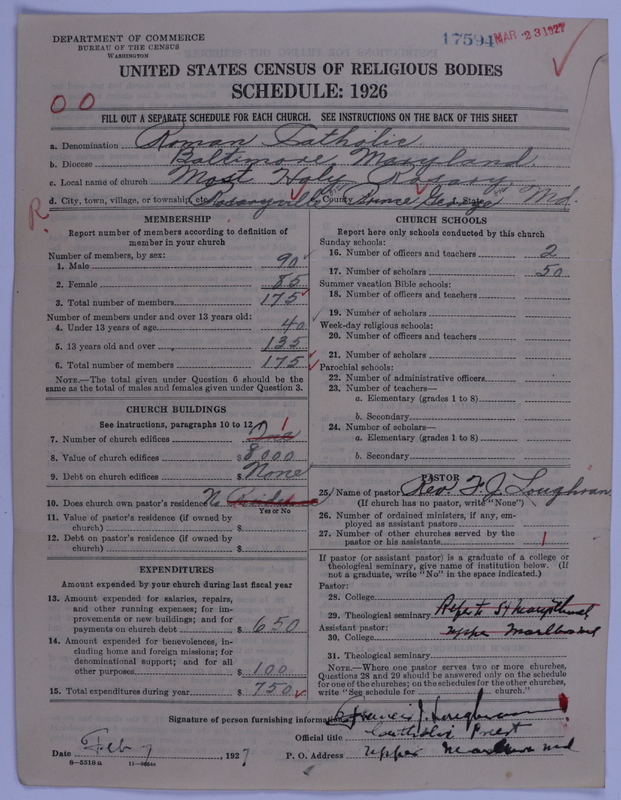 DEPARTMENT OF COMMERCE
BUREAU OF THE CENSUS
WASHINGTON
17594
MAR 23 1927
UNITED STATES CENSUS OF RELIGIOUS BODIES
SCHEDULE: 1926
O O
FILL OUT A SEPARATE SCHEDULE FOR EACH CHURCH. SEE INSTRUCTIONS ON THE BACK OF THIS SHEET
a. Denomination Roman Catholic
b. Diocese Baltimore, Maryland
c. Local name of church Most Holy Rosary
d. City, town, village, or township, etc. Rosaryville County Prince Georges State Md.
R
MEMBERSHIP
Report number of members according to definition of
member in your church
Number of members, by sex:
1. Male 90
2. Female 85
3. Total number of members 175
Number of members under and over 13 years old:
4. Under 13 years of age 40
5. 13 years old and over 135
6. Total number of members 175
NOTE.—The total given under Question 6 should be the
same as the total of males and females given under Question 3.
CHURCH BUILDINGS
See instructions, paragraphs 10 to 12
7. Number of church edifices One 1
8. Value of church edifices $ 8,000
9. Debt on church edifices $ None
10. Does church own pastor's residence No Residence
Yes or No
11. Value of pastor's residence (if owned by
church) $
12. Debt on pastor's residence (if owned by
church) $
EXPENDITURES
Amount expended by your church during last fiscal year
13. Amount expended for salaries, repairs,
and other running expenses; for im-
provements or new buildings; and for
payments on church debt $ 650
14. Amount expended for benevolences, in-
cluding home and foreign missions; for
denominational support; and for all
other purposes $ 100
15. Total expenditures during year $ 750
CHURCH SCHOOLS
Report here only schools conducted by this church
Sunday schools:
16. Number of officers and teachers 2
17. Number of scholars 50
Summer vacation Bible schools:
18. Number of officers and teachers
19. Number of scholars
Week-day religious schools:
20. Number of officers and teachers
21. Number of scholars
Parochial schools:
22. Number of administrative officers
23. Number of teachers—
a. Elementary (grades 1 to 8)
b. Secondary
24. Number of scholars—
a. Elementary (grades 1 to 8)
b. Secondary
PASTOR
25. Name of pastor Rev. F. J. Loughran
(If church has no pastor, write "None")
26. Number of ordained ministers, if any, em-
ployed as assistant pastors
27. Number of other churches served by the
pastor or his assistants 1
If pastor (or assistant pastor) is a graduate of a college or
theological seminary, give name of institution below. (If
not a graduate, write "No" in the space indicated.)
Pastor:
28. College
29. Theological seminary St Marys
Assistant pastor:
30. College Upper Marlboro Md
31. Theological seminary
NOTE.—Where one pastor serves two or more churches,
Questions 28 and 29 should be answered only on the schedule
for one of the churches; on the schedules for the other churches,
write "See schedule for church."
Signature of person furnishing information Francis J. Loughran
Official title Catholic Priest
Date Feb 7, 1927 P. O. Address Upper Marlboro Md
8—5518a